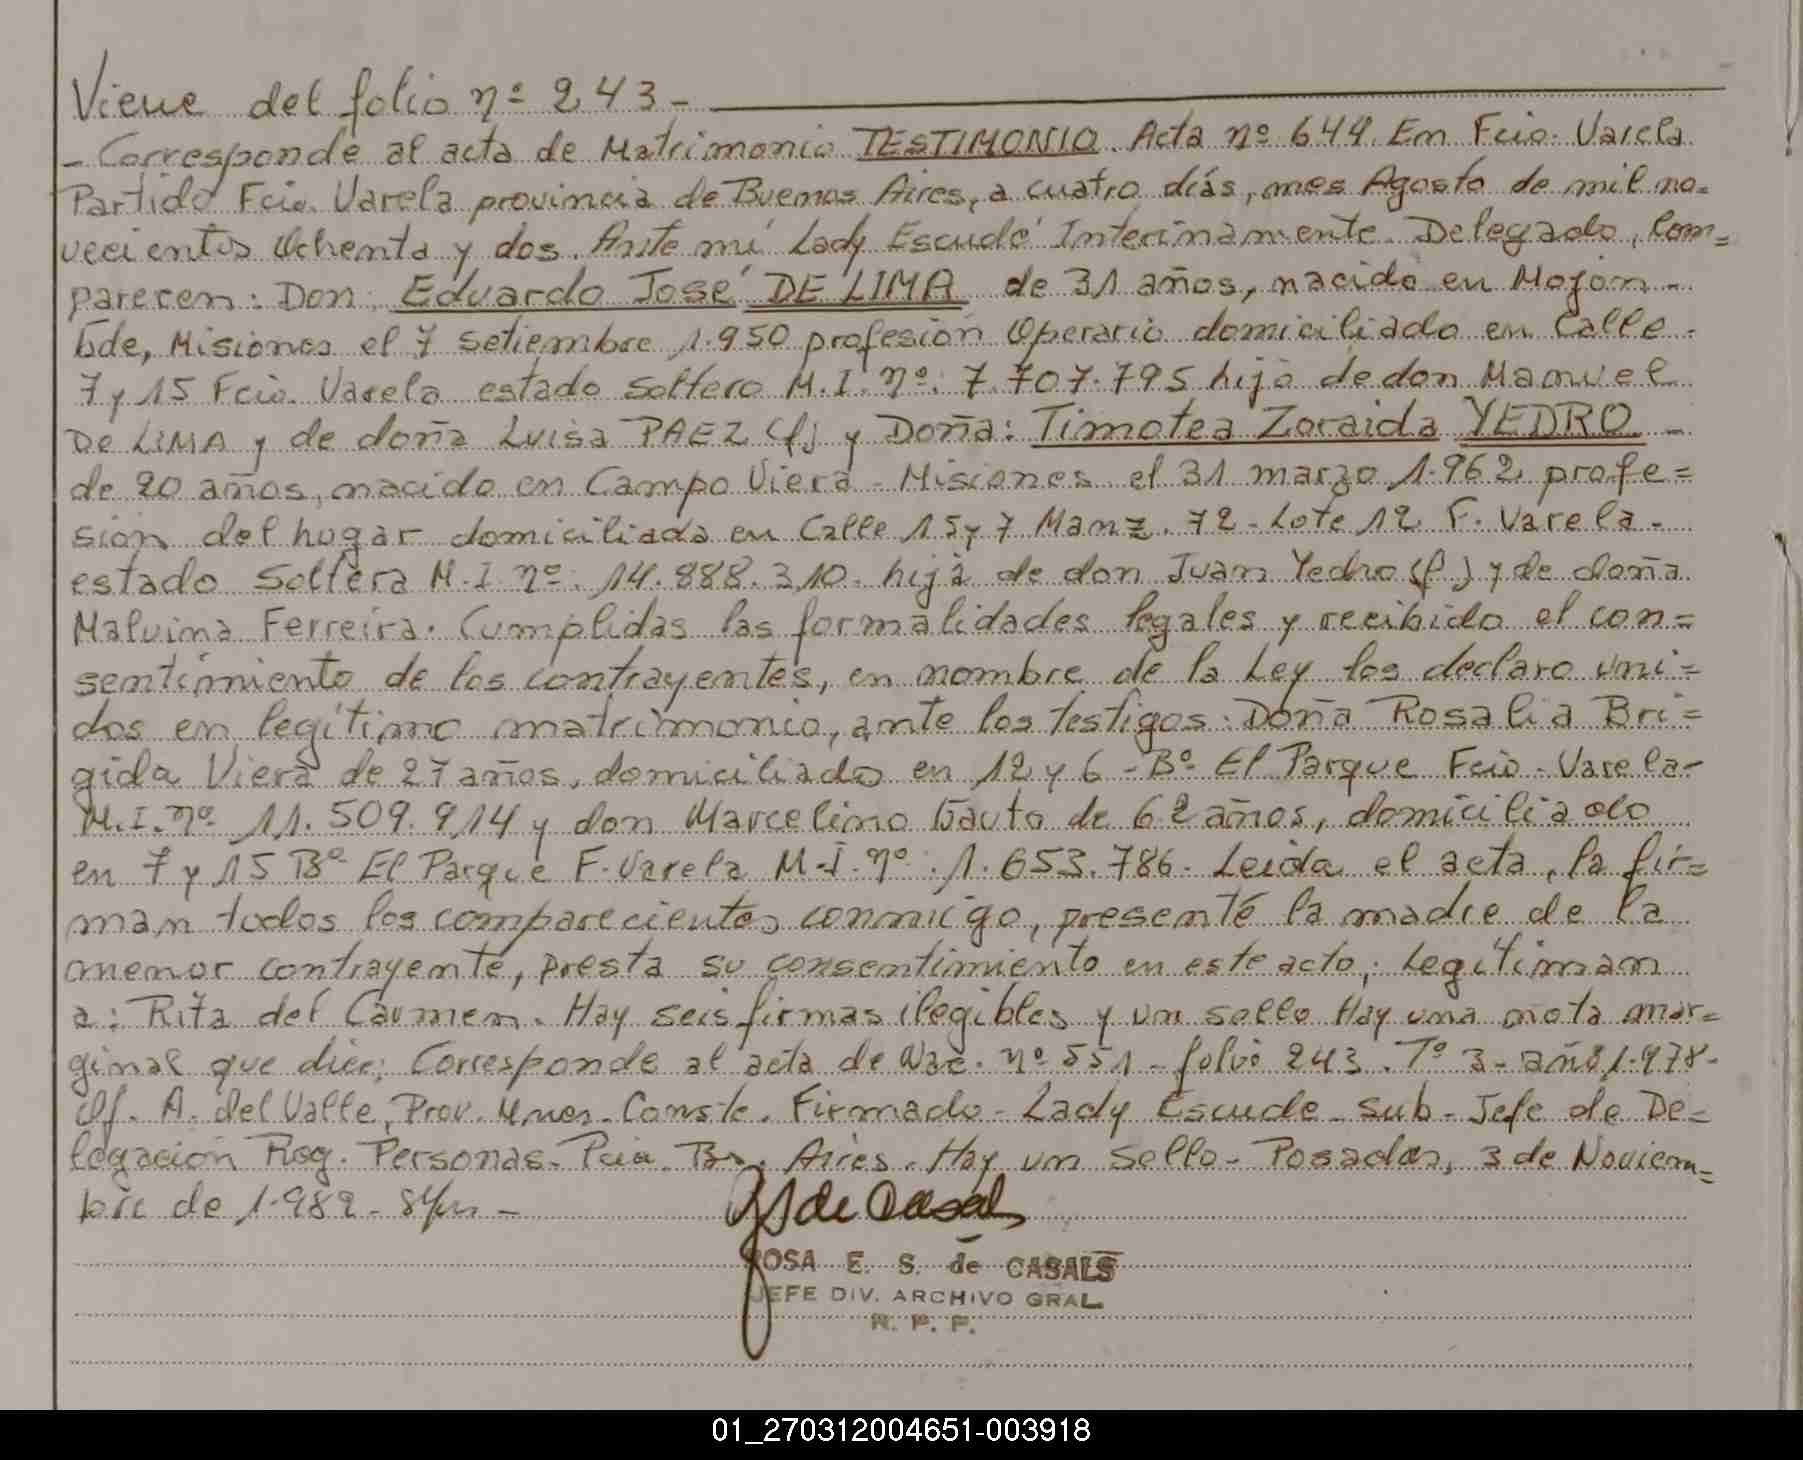 Viene del folio nº 243-
- Corresponde al acta de Matrimonio TESTIMONIO. Acta nº 649. En Fcio. Varela
Partido Fcio. Varela provincia de Buenos Aires, a cuatro días, mes Agosto de mil no=
vecientos Ochenta y dos. Ante mí Lady Escudé Interinamente. Delegado, Com=
parecen: Don: Eduardo José DE LIMA de 31 años, nacido en Mojón-
Gde, Misiones el 7 setiembre 1.950 profesión Operario domiciliado en Calle-
7 y 15 Fcio. Varela estado soltero M.I. nº: 7.707.795 hijo de don Manuel
De LIMA y de doña Luisa PAEZ (f) y Doña: Timotea Zoraida YEDRO -
de 20 años, nacido en Campo Viera - Misiones el 31 marzo 1.962 profe=
sión del hogar domiciliada en Calle 15 y 7 Manz. 72 - Lote 12 F. Varela -
estado soltera M.I. nº: 14.888.310. hija de don Juan Yedro (f.) y de doña
Malvina Ferreira. Cumplidas las formalidades legales y recibido el con=
sentimiento de los contrayentes, en nombre de la Ley los declaro uni=
dos en legítimo matrimonio, ante los testigos: Doña Rosalia Bri=
gida Viera de 27 años, domiciliado en 12 y 6 - Bº El Parque Fcio. Varela-
M.I. nº 11.509.914 y don Marcelino Gauto de 62 años, domiciliado
en 7 y 15 Bº El Parque F. Varela M.I. nº: 1.653.786. Leida el acta, la fir=
man todos los comparecientes conmigo, presenté la madre de la
menor contrayente, presta su consentimiento en este acto; Legítiman
a: Rita del Carmen. Hay seis firmas ilegibles y un sello Hay una nota mar=
ginal que dice; Corresponde al acta de Nac. nº 551 - folio 243. Tº 3- año 1.978-
Of. A. del Valle, Prov. Mnes. Conste. Firmado - Lady Escude - Sub-Jefe de De=
legación Reg. Personas. Pcia. Bs. Aires. Hay un sello - Posadas, 3 de Noviem=
bre de 1.982 -
ROSA E. S. de CASALS
JEFE DIV. ARCHIVO GRAL.
R. P. P.
01_270312004651-003918